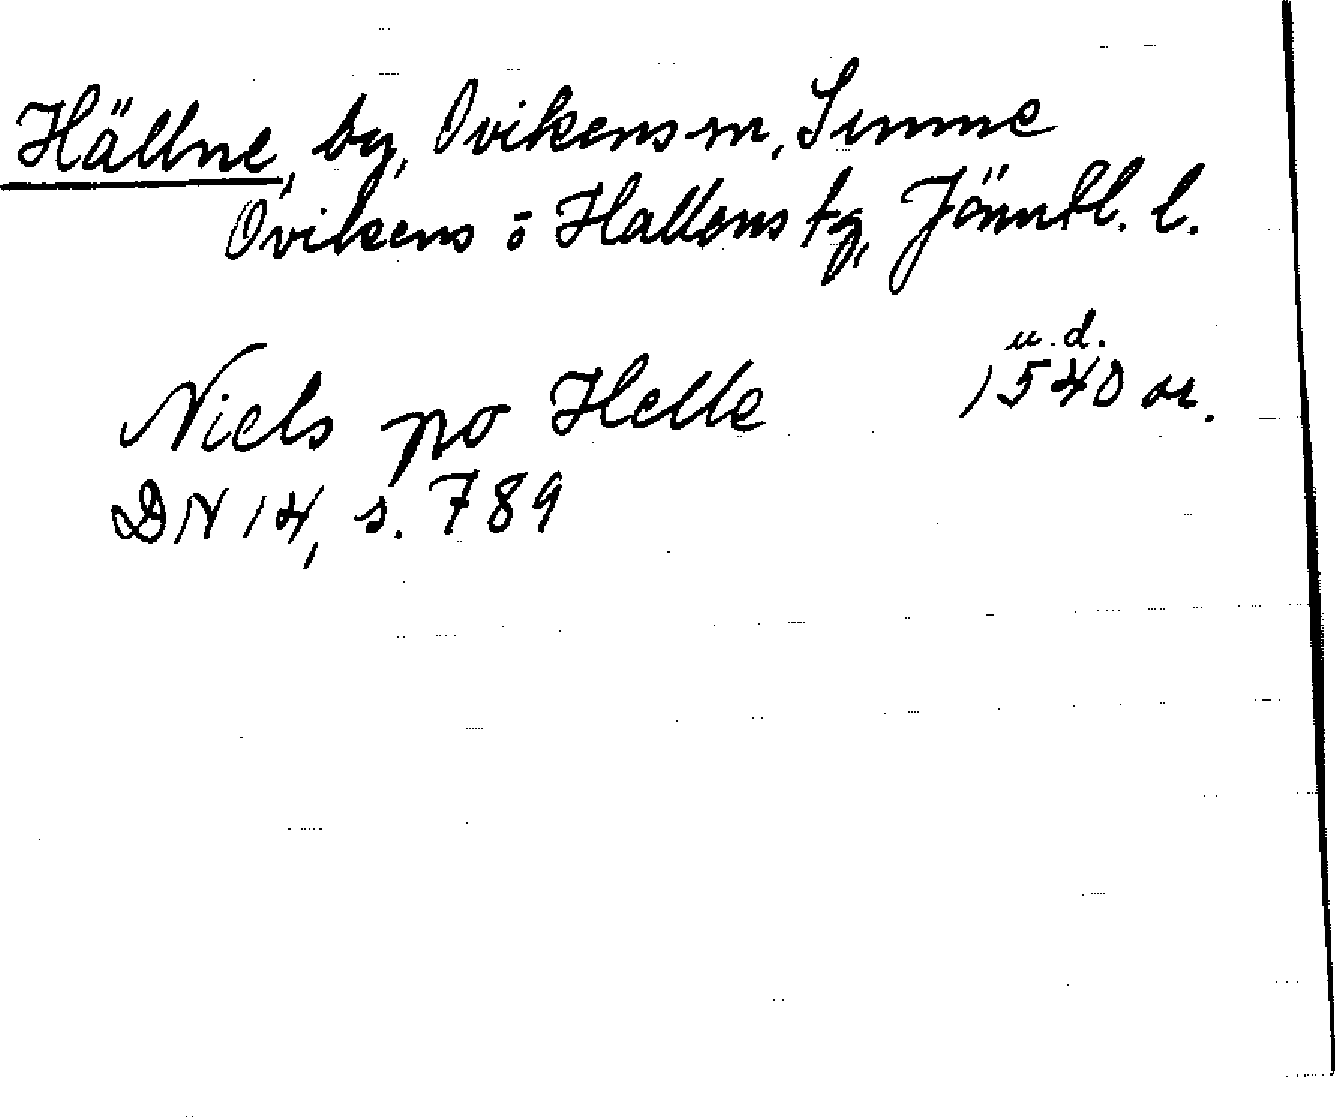 Hällne, by, Ovikens sn, Sunne
Ovikens o Hallens tg, Jämtl. l.
u.d.
Niels po Helle 1540 or.
DN 14, s. 789